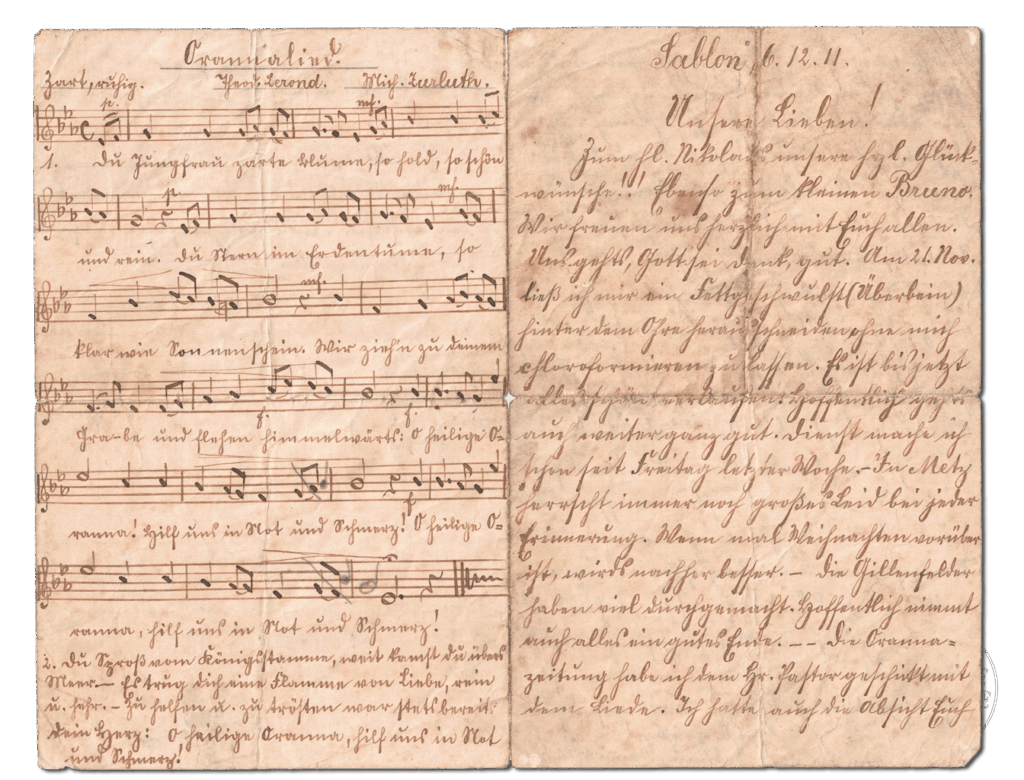 Orannalied.
Zart, ruhig. Theod. Lerond. Mich. Zurluth.
p. mf.
1. Du Jungfrau zarte Blume, so hold, so schön
p. mf.
und rein. Du Stern im Erdentume, so
mf.
klar wie Sonnenschein. Wir zieh'n zu deinem
f. f.
Gra-be und flehen himmelwärts: O heilige O=
f.
ranna! Hilf uns in Not und Schmerz! O heilige O=
ranna, hilf uns in Not und Schmerz!
2. Du Sproß vom Königsstamme, weit kamst du übers
Meer. – Es trug dich eine Flamme von Liebe, rein
u. hehr. – Zu helfen u. zu trösten war stets bereit
dein Herz: O heilige Oranna, hilf uns in Not
und Schmerz!
Sablon, 6.12.11.
Unsere Lieben!
Zum hl. Nikolaus unsere hzl. Glück-
wünsche!! Ebenso zum kleinen Bruno.
Wir freuen uns herzlich mit Euch allen.
Uns gehts, Gott sei Dank, gut. Am 21. Nov.
ließ ich mir ein Fettgeschwulst (Überbein)
hinter dem Ohre herausschneiden ohne mich
chloroformieren zu lassen. Es ist bis jetzt
alles schön verlaufen. Hoffentlich geht's
auch weiter ganz gut. Dienst mache ich
schon seit Freitag letzter Woche. – In Metz
herrscht immer noch großes Leid bei jeder
Erinnerung. Wenn mal Weihnachten vorüber
ist, wirds nachher besser. – Die Gillenfelder
haben viel durchgemacht. Hoffentlich nimmt
auch alles ein gutes Ende. – – Die Oranna=
zeitung habe ich dem Hr. Pastor geschickt mit
dem Liede. Ich hatte auch die Absicht Euch